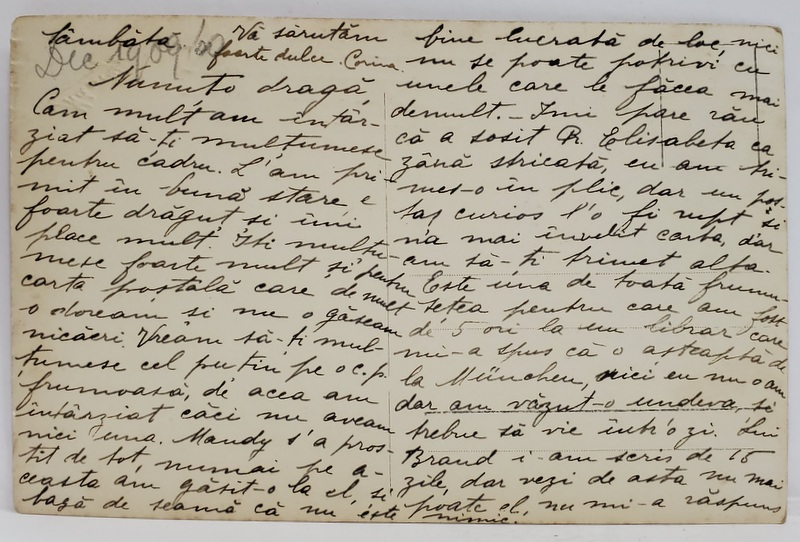 Sâmbătă.
Dec 1909
Vă sărutăm
foarte dulce. Corina.
Nunuto dragă,
Cam mult am întâr-
ziat să-ți mulțumesc
pentru cadru. L'am pri-
mit în bună stare e
foarte drăguț și îmi
place mult. Iți mulțu-
mesc foarte mult și pentru
carta poștală care de mult
o doream și nu o găseam
nicăeri. Vream să-ți mul-
țumesc cel puțin pe o c.p.
frumoasă, de acea am
întârziat căci nu aveam
nici una. Mandy s'a pros-
tit de tot, numai pe a-
ceasta am găsit-o la el, și
bagă de seamă că nu este
bine lucrată de loc, nici
nu se poate potrivi cu
unele care le făcea mai
demult. - Imi pare rău
că a sosit R. Elisabeta ca
zână stricată, eu am tri-
mes-o în plic, dar un poș-
taș curios l'o fi rupt și
n'a mai învelit carta, dar
am să-ți trimet alta.
Este una de toată frumu-
sețea pentru care am fost
de 5 ori la un librar care
mi-a spus că o așteaptă de
la München, nici eu nu o am
dar am văzut-o undeva, și
trebue să vie într'o zi. Lui
Brand i-am scris de 15
zile, dar vezi de asta nu mai
poate el, nu mi-a răspuns
nimic.